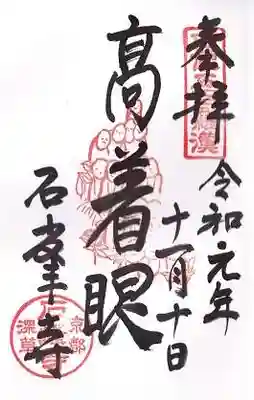 奉拝
令和元年
十一月十日
高着眼
石峯寺
羅漢
京都
深草